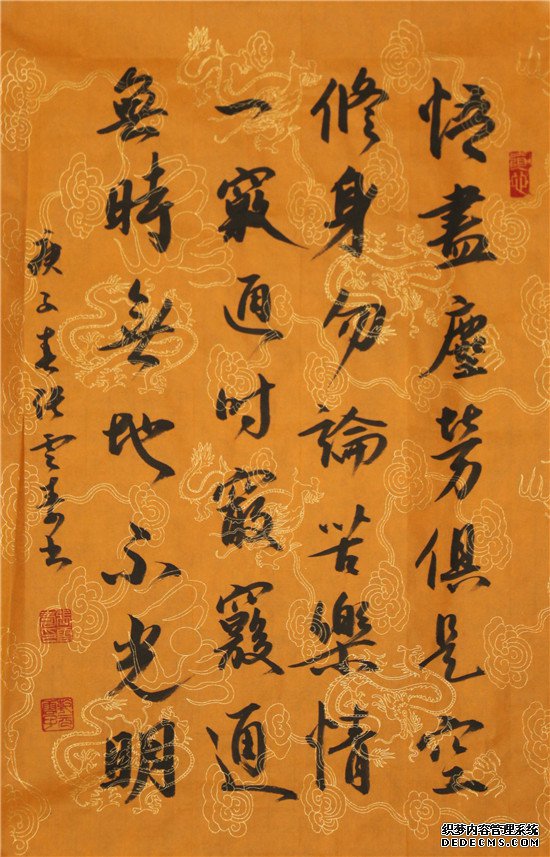 悟盡塵勞俱是空
修身勿論苦樂情
一竅通时竅竅通
無時無地不光明
庚子春张雲寿书
织梦内容管理系统
DEDECMS.COM